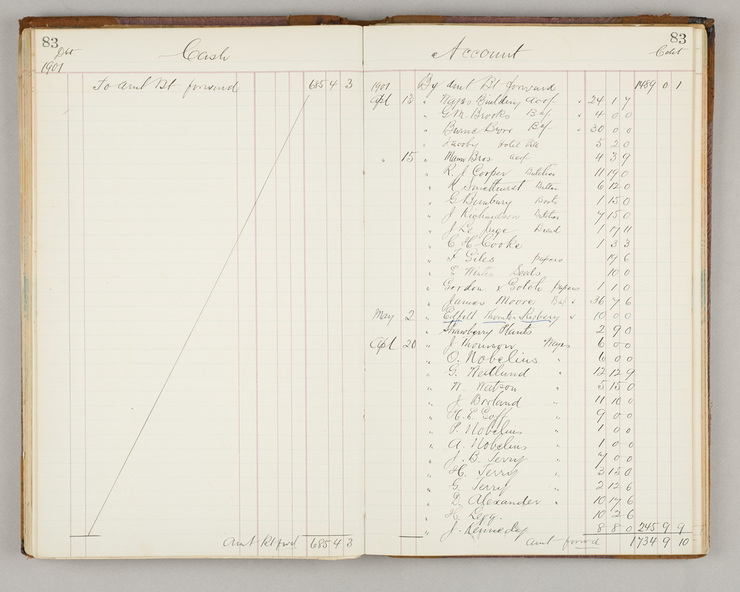 83
Dbt
Cash
1901
To Amt Bt forward 685 4 3
Amt Bt fwd 685 4 3
83
Account
Cdit
1901 By Amt Bt forward 1489 0 1
Apl 13 " Building " 24 1 7
" G. M. Brooks " 4 0 0
" " 30 0 0
" Jacoby Hotel 5 2 0
" 15 " Mann Bros 4 3 9
" R. J. Cooper Butcher 11 19 0
" R Smethurst Butter 6 12 0
" G Bunbury Boots 1 15 0
" J Richardson Butcher 7 15 0
" J Le Juge Bread 1 17 11
" C H Cooke 1 3 3
" F Giles papers 17 6
" E Seals 10 0
" Gordon & Gotch papers 1 1 0
" James Moore " 36 7 6
May 2 " " 10 0 0
" Strawberry Plants 2 9 0
Apl 20 " J Thomson Wages 6 0 0
" O. Nobelius " 6 0 0
" G. Hedlund " 12 12 9
" W. Watson " 5 15 0
" J. Borland " 11 10 0
" H. E. Goff " 9 0 0
" P. Nobelius " 1 0 0
" A. Nobelius " 1 0 0
" J. B. Terry " 7 0 0
" H. Terry " 3 15 0
" G. Terry " 2 12 6
" D. Alexander " 10 17 6
" H. Legg " 10 2 6
" J. Kennedy 8 8 0 245 9 9
Amt forwd 1734 9 10